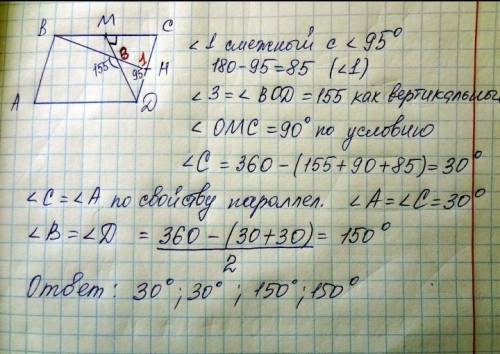 B M C
3 1
155 95° H
A D
∠1 смежный с ∠95°
180-95=85 (∠1)
∠3=∠BOD=155 как вертикальны
∠OMC=90° по условию
∠C=360-(155+90+85)=30°
∠C=∠A по свойству параллел. ∠A=∠C=30°
∠B=∠D = 360-(30+30) = 150°
2
Ответ: 30°; 30°; 150°; 150°